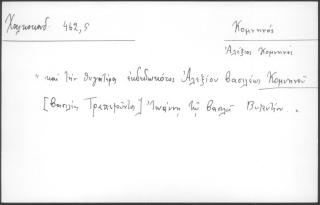 Χαλκοκονδ. 462,5
Κομνηνός
Ἀλέξιος Κομνηνός
"καὶ τὴν θυγατέρα ἐκδεδωκότος Ἀλεξίου βασιλέως Κομνηνοῦ
[βασιλεὺς Τραπεζοῦντος] Ἰωάννῃ τῷ βασιλεῖ Βυζαντίου..."